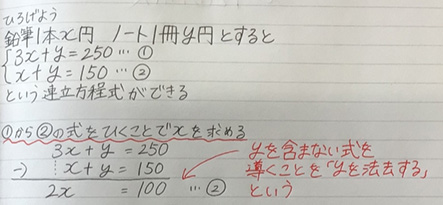 ひろげよう
鉛筆1本x円 ノート1冊y円とすると
{3x+y=250…①
{x+y=150…②
という連立方程式ができる
①から②の式をひくことでxを求める
3x+y=250
-) x+y=150
2x =100 …②
yを含まない式を
導くことを「yを法去する」
という